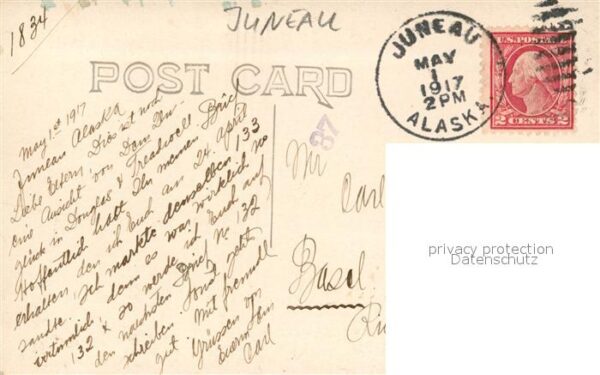 1834
JUNEAU
JUNEAU
MAY
1
1917
2 PM
ALASKA
U.S. POSTAGE
2 CENTS 2
POST CARD
37
May 1st 1917
Juneau Alaska
Liebe Eltern, Dies ist noch
eine Ansicht von Dem Un-
glück in Douglas & Treadwell
Hoffentlich habt Ihr meinen Brief
erhalten den ich Euch am 24. April
sandte. Ich markte denselben 133
vertümlich, denn es war wirklich No
132 & so werde ich Euch auf
den nächsten Brief No 132
schreiben. Sonst geht
gut. Mit freundl
Grüssen von
Eurem Sohn
Carl
Mr
Carl
Basel
privacy protection
Datenschutz